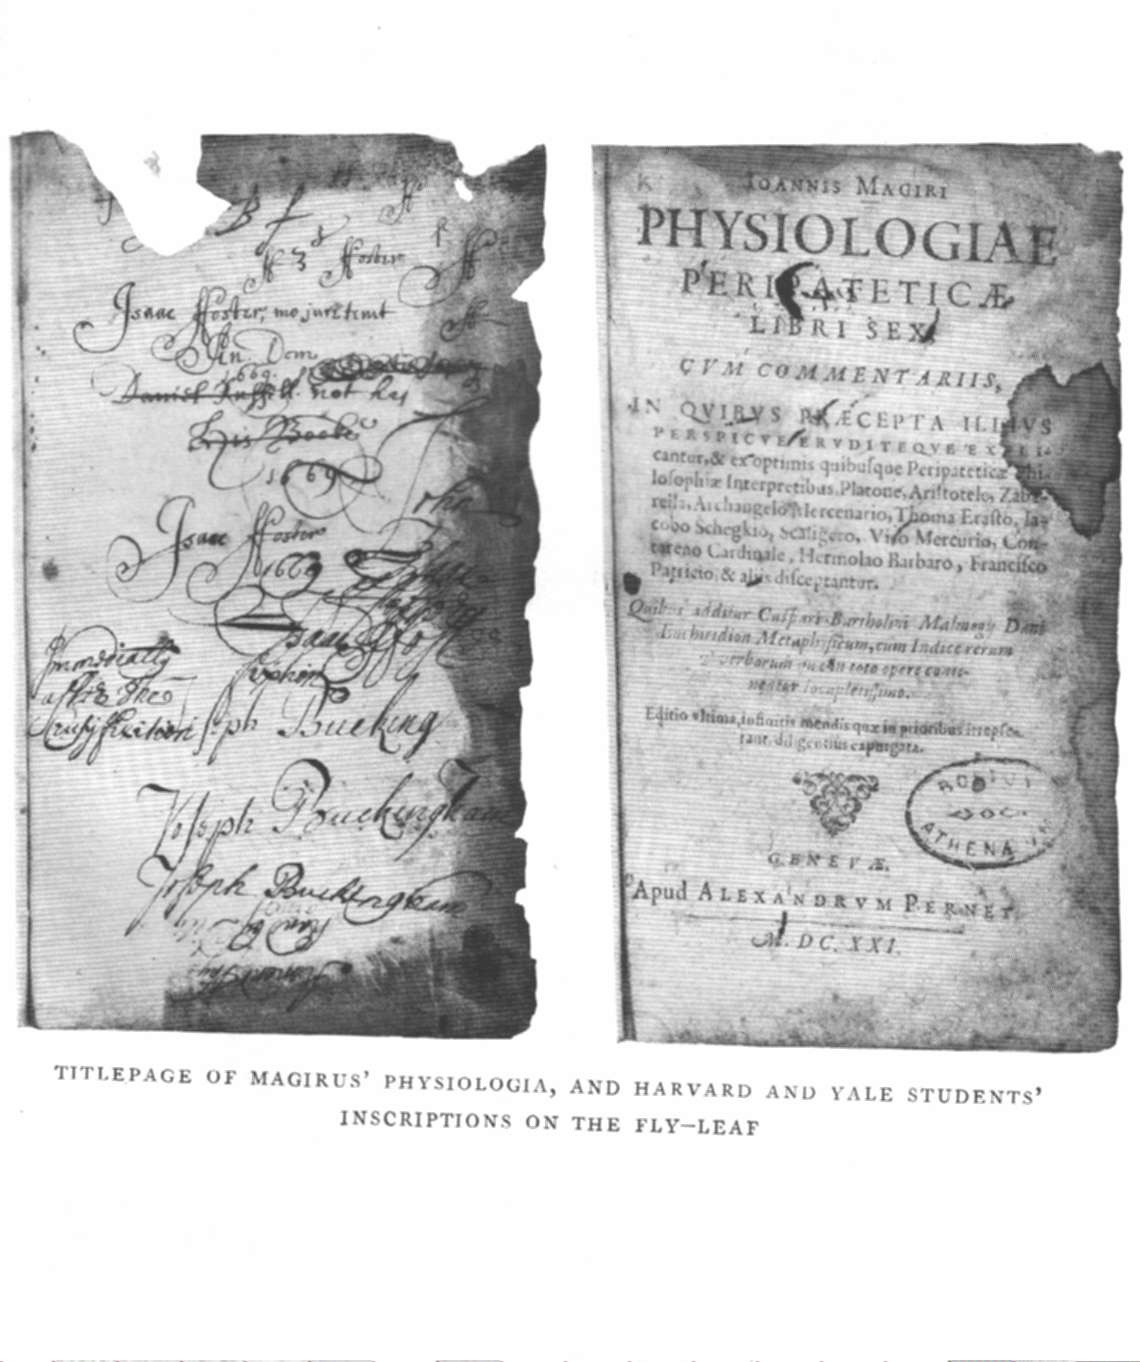 B f
H 3 ffoster
Isaac ffoster, me jure tenet
An. Dom
1669.
Daniel Russell. not his
his Booke
1669
Isaac ffoster
1669
Immediatly
after the
Crusyfixition
seph Bucking
Joseph Buckingham
Joseph Buckingham
IOANNIS MAGIRI
PHYSIOLOGIAE
PERIPATETICÆ
LIBRI SEX,
CVM COMMENTARIIS,
IN QVIBVS PRÆCEPTA ILLIVS
PERSPICVE ERVDITEQVE EXPLI-
cantur, & ex optimis quibuſque Peripateticæ Phi-
loſophiæ Interpretibus, Platone, Ariſtotele, Zaba-
rella, Archangelo Mercenario, Thoma Eraſto, Ia-
cobo Schegkio, Scaligero, Viſo Mercurio, Con-
tareno Cardinale, Hermolao Barbaro, Franciſco
Patricio, & aliis diſceptantur.
Quibus additur Caſpari Bartholini Malmogy Dani
Enchiridion Metaphyſicum, cum Indice rerum
& verborum in toto opere conti-
nentur locupletiſſimo.
Editio vltima, infinitis mendis quæ in prioribus irrepſe-
rant, diligentius expurgata.
GENEVÆ,
Apud ALEXANDRVM PERNET,
M. DC. XXI.
ATHENA
TITLEPAGE OF MAGIRUS' PHYSIOLOGIA, AND HARVARD AND YALE STUDENTS'
INSCRIPTIONS ON THE FLY-LEAF